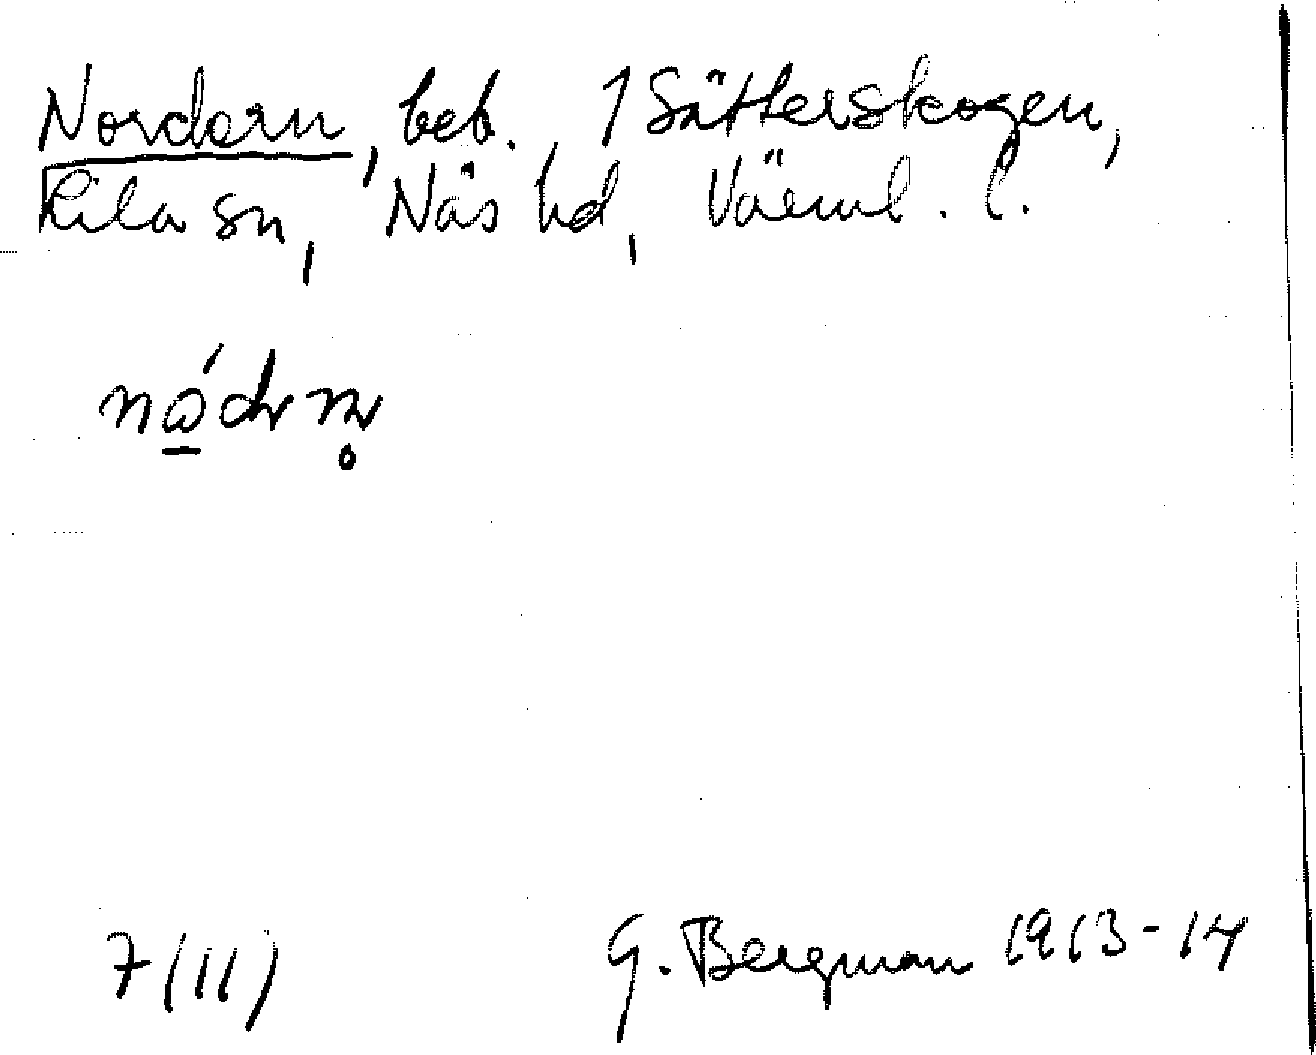 Nordern, beb. 1 Sätterskogen,
Kila sn, Näs hd, Värml. l.
7 (11)
G. Bergman 1913-14